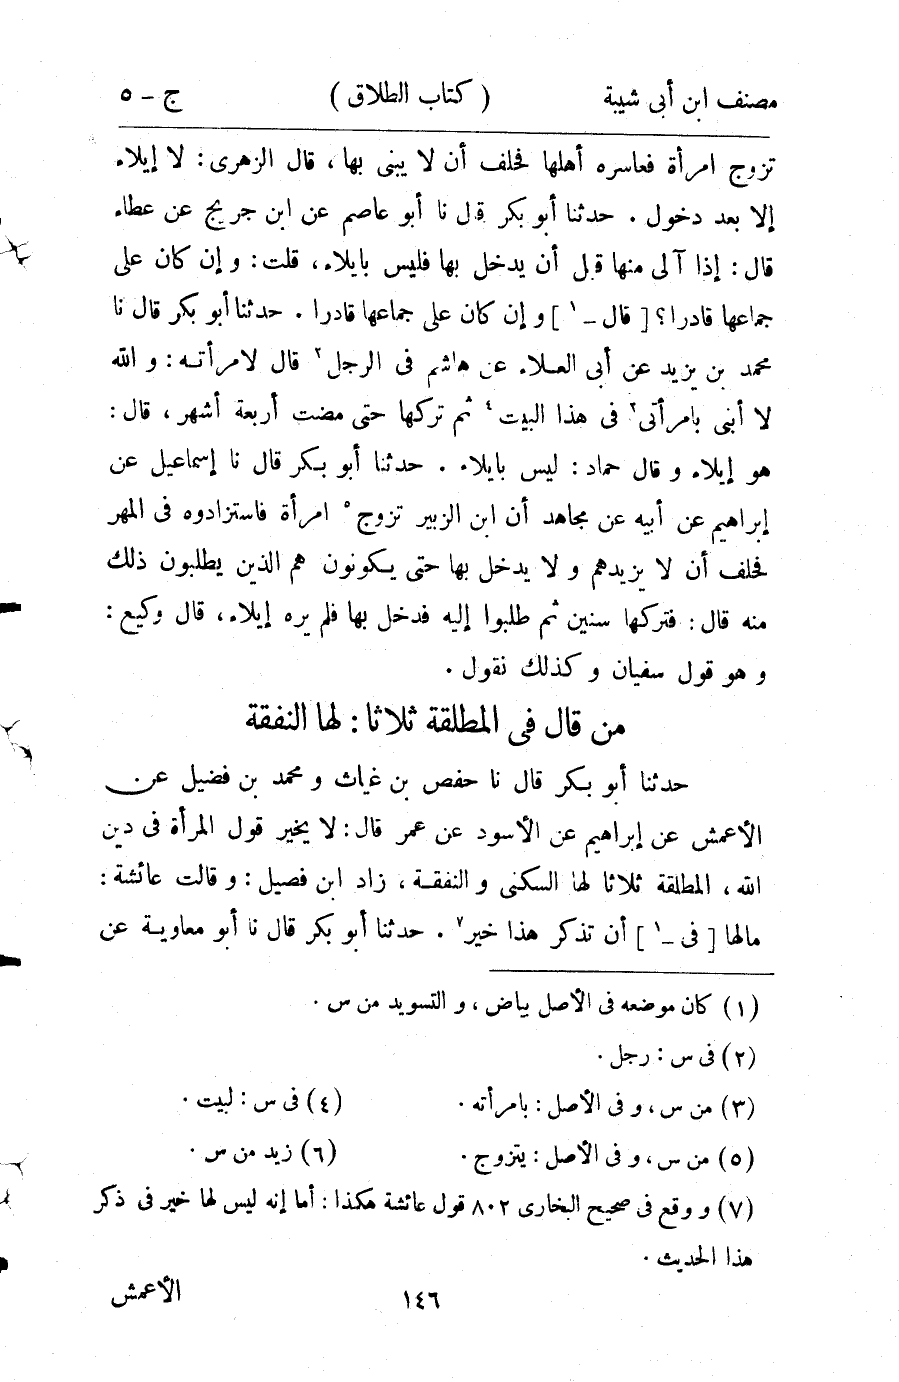 مصنف ابن أبى شيبة ( كتاب الطلاق ) ج - ٥
تزوج امرأة فعاسره أهلها فحلف أن لا يبنى بها ، قال الزهرى : لا إيلاء
إلا بعد دخول . حدثنا أبو بكر قال نا أبو عاصم عن ابن جريج عن عطاء
قال : إذا آلى منها قبل أن يدخل بها فليس بايلاء ، قلت : و إن كان على
جماعها قادرا ؟ [ قال - ١ ] و إن كان على جماعها قادرا . حدثنا أبو بكر قال نا
محمد بن يزيد عن أبى العلاء عن هاشم فى الرجل ٢ قال لامرأته : و الله
لا أبنى بامرأتى ٣ فى هذا البيت ٤ ثم تركها حتى مضت أربعة أشهر ، قال :
هو إيلاء و قال حماد : ليس بايلاء . حدثنا أبو بكر قال نا إسماعيل عن
إبراهيم عن أبيه عن مجاهد أن ابن الزبير تزوج ٥ امرأة فاستزادوه فى المهر
فحلف أن لا يزيدهم و لا يدخل بها حتى يكونون هم الذين يطلبون ذلك
منه قال : فتركها سنين ثم طلبوا إليه فدخل بها فلم يره إيلاء ، قال وكيع :
و هو قول سفيان و كذلك نقول .
من قال فى المطلقة ثلاثا : لها النفقة
حدثنا أبو بكر قال نا حفص بن غياث و محمد بن فضيل عن
الأعمش عن إبراهيم عن الأسود عن عمر قال : لا يخير قول المرأة فى دين
الله ، المطلقة ثلاثا لها السكنى و النفقة ، زاد ابن فصيل : و قالت عائشة :
مالها [ فى - ١ ] أن تذكر هذا خير ٧ . حدثنا أبو بكر قال نا أبو معاوية عن
(١) كان موضعه فى الأصل بياض ، و التسويد من س .
(٢) فى س : رجل .
(٣) من س ، و فى الأصل : بامرأته . (٤) فى س : لبيت .
(٥) من س ، و فى الأصل : يتزوج . (٦) زيد من س .
(٧) و وقع فى صحيح البخارى ٨٠٢ قول عائشة هكذا : أما إنه ليس لها خير فى ذكر
هذا الحديث .
١٤٦ الأعمش